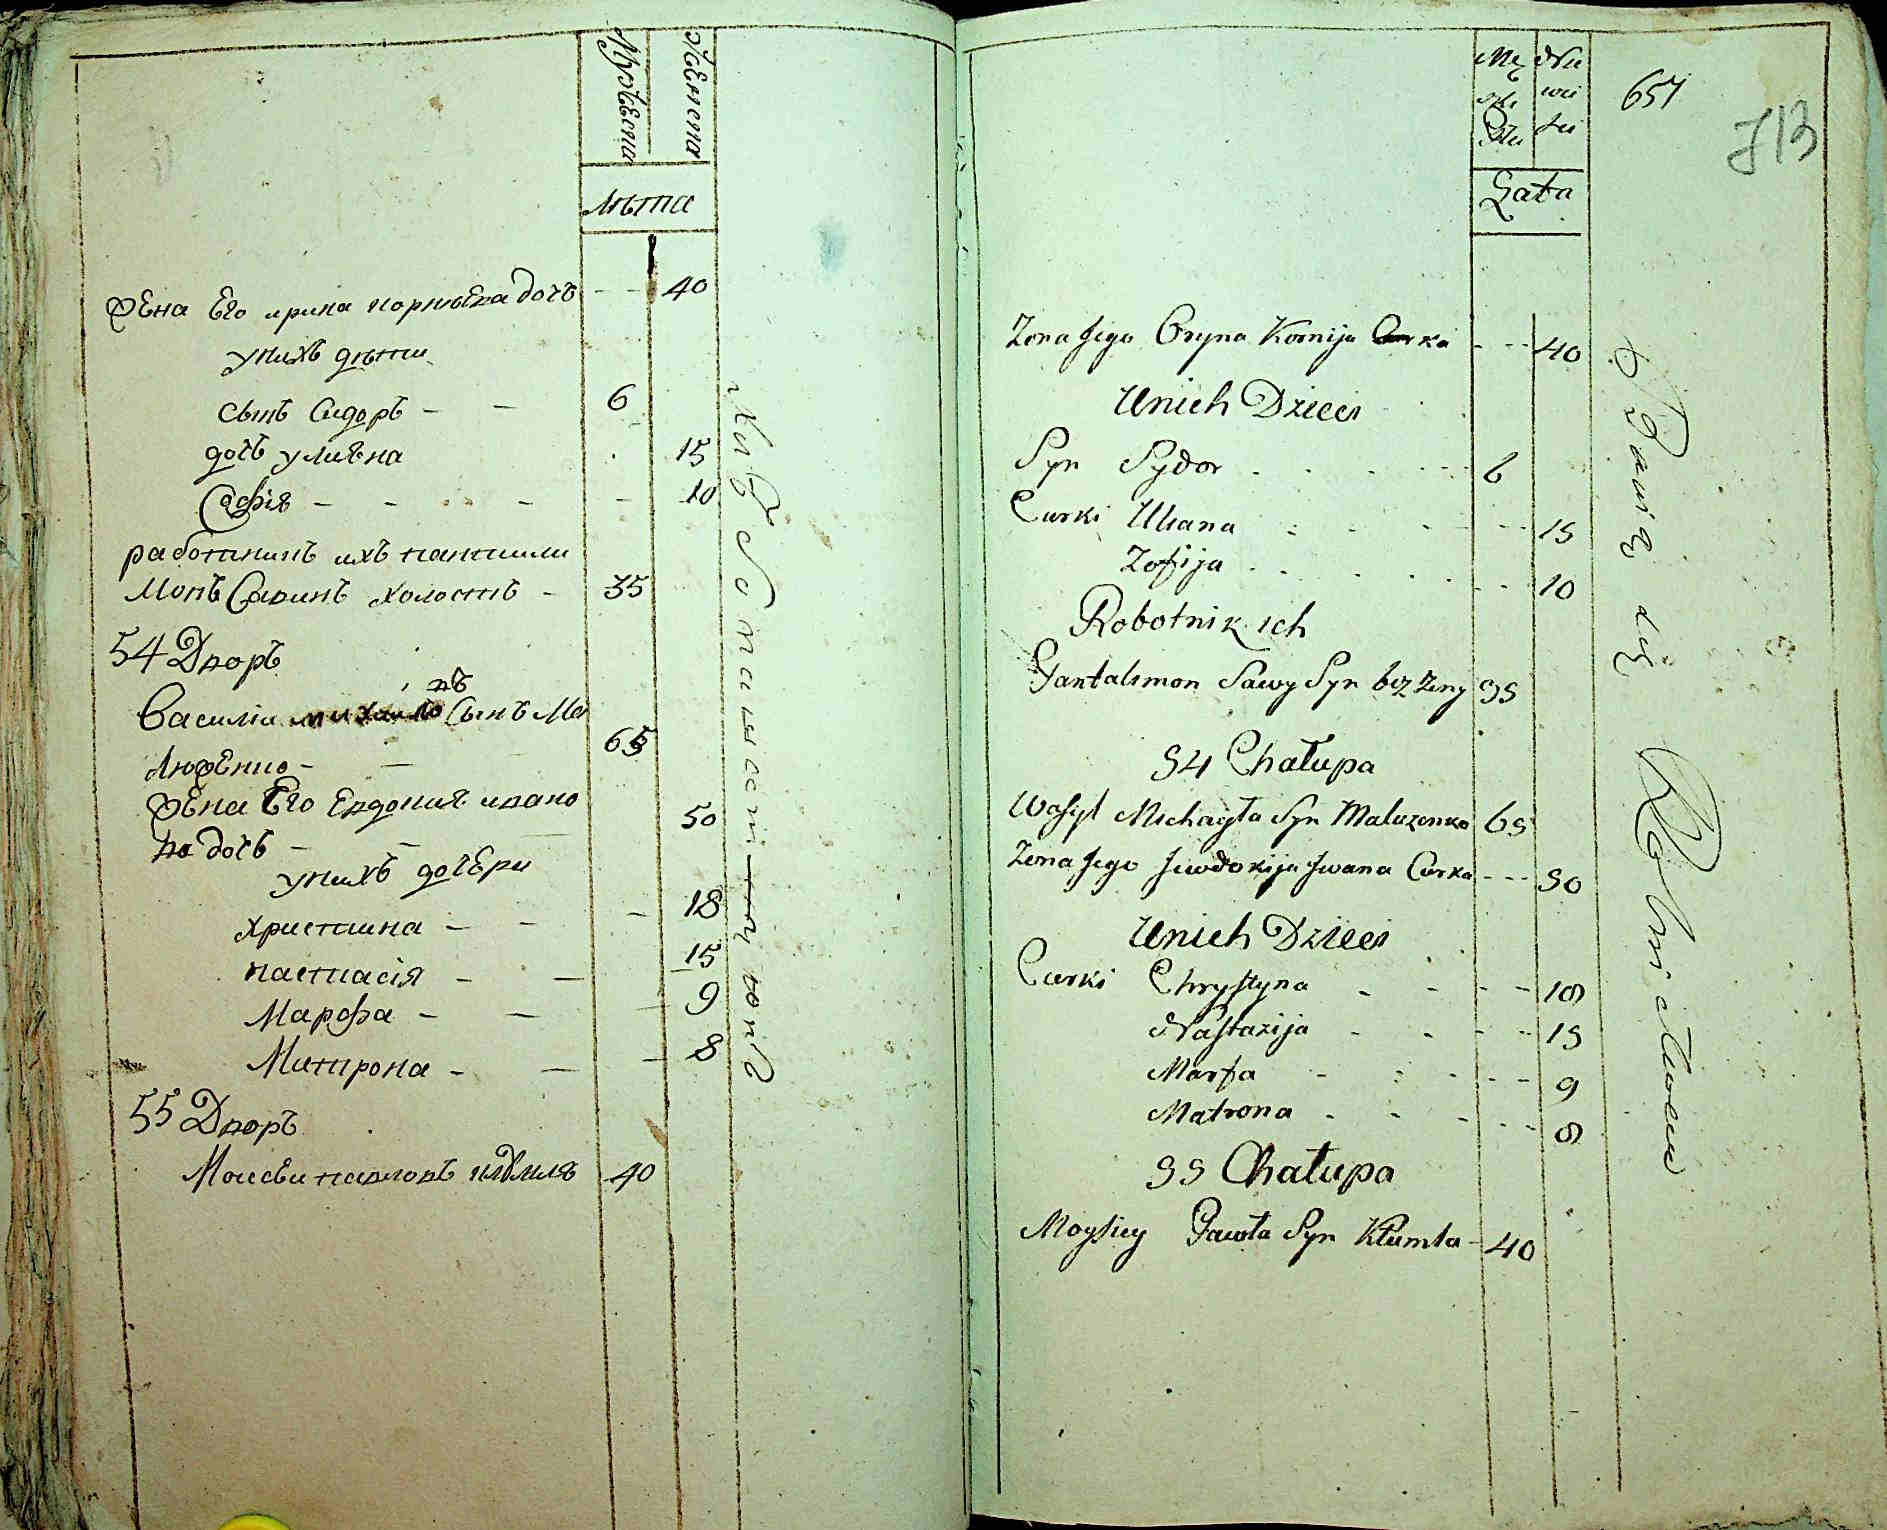 Мужеска
Женска
лѣта
Жена Его ирина корнѣева дочь - - 40
у нихъ дѣти
сынъ Сидоръ - - 6
дочь улияна 15
Софія - - - - - 10
работникъ ихъ пантили
монъ Савинъ холостъ - 35
54 Дворъ
въ
Василій михайло Сынъ Ма
люженко - - 65
жена Его Евдокия ивано
ва дочь - - 50
у нихъ дочери
христина - - - 18
настасія - - 15
Марфа - - 9
Митрона - - 8
55 Дворъ
Моисеи павловъ 40
657
713
Lata
Zona Jego Oryna Kornija Curka - - - 40
Unich Dzieci
Syn Sydor 6
Curki Uliana 15
Zofija 10
Robotnik ich
Pantalimon Sawy Syn bez Zony 35
54 Chałupa
Wasyl Michayła Syn Maluzenko 65
Zona Jego Jewdokija Jwana Curka - - - 50
Unich Dzieci
Curki Chrystyna - - - - 18
Nastazija - - - - 15
Marfa - - - - 9
Matrona - - - - 8
55 Chałupa
Moysiey Pawła Syn Kłumla - 40
Bawią się Rolnictwem